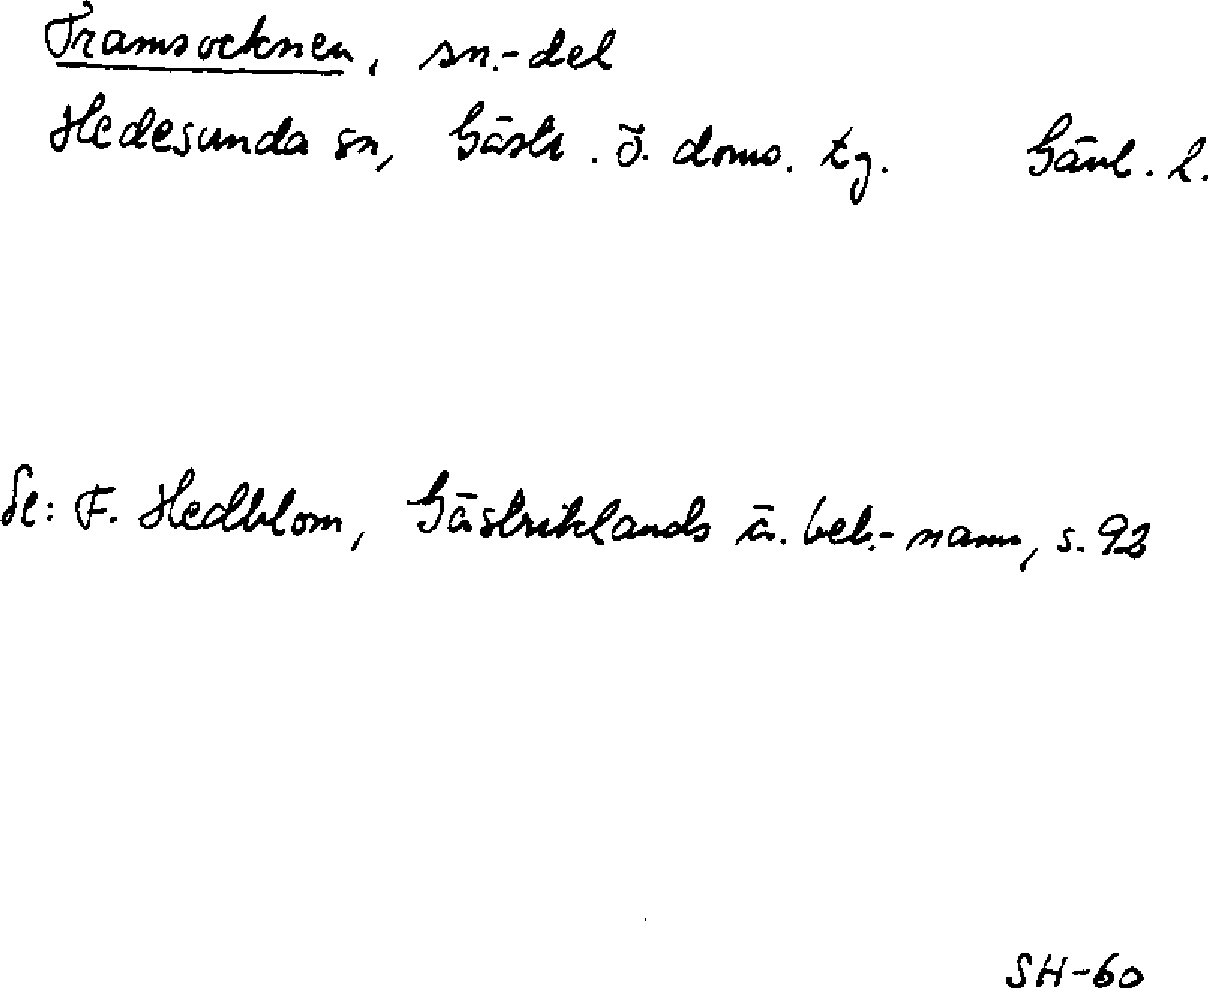 Framsocknen, sn.-del
Hedesunda sn, Gästr. Ö. doms. tg. Gävl. l.
Se: F. Hedblom, Gästriklands ä. beb.-namn, s. 92
SH-60